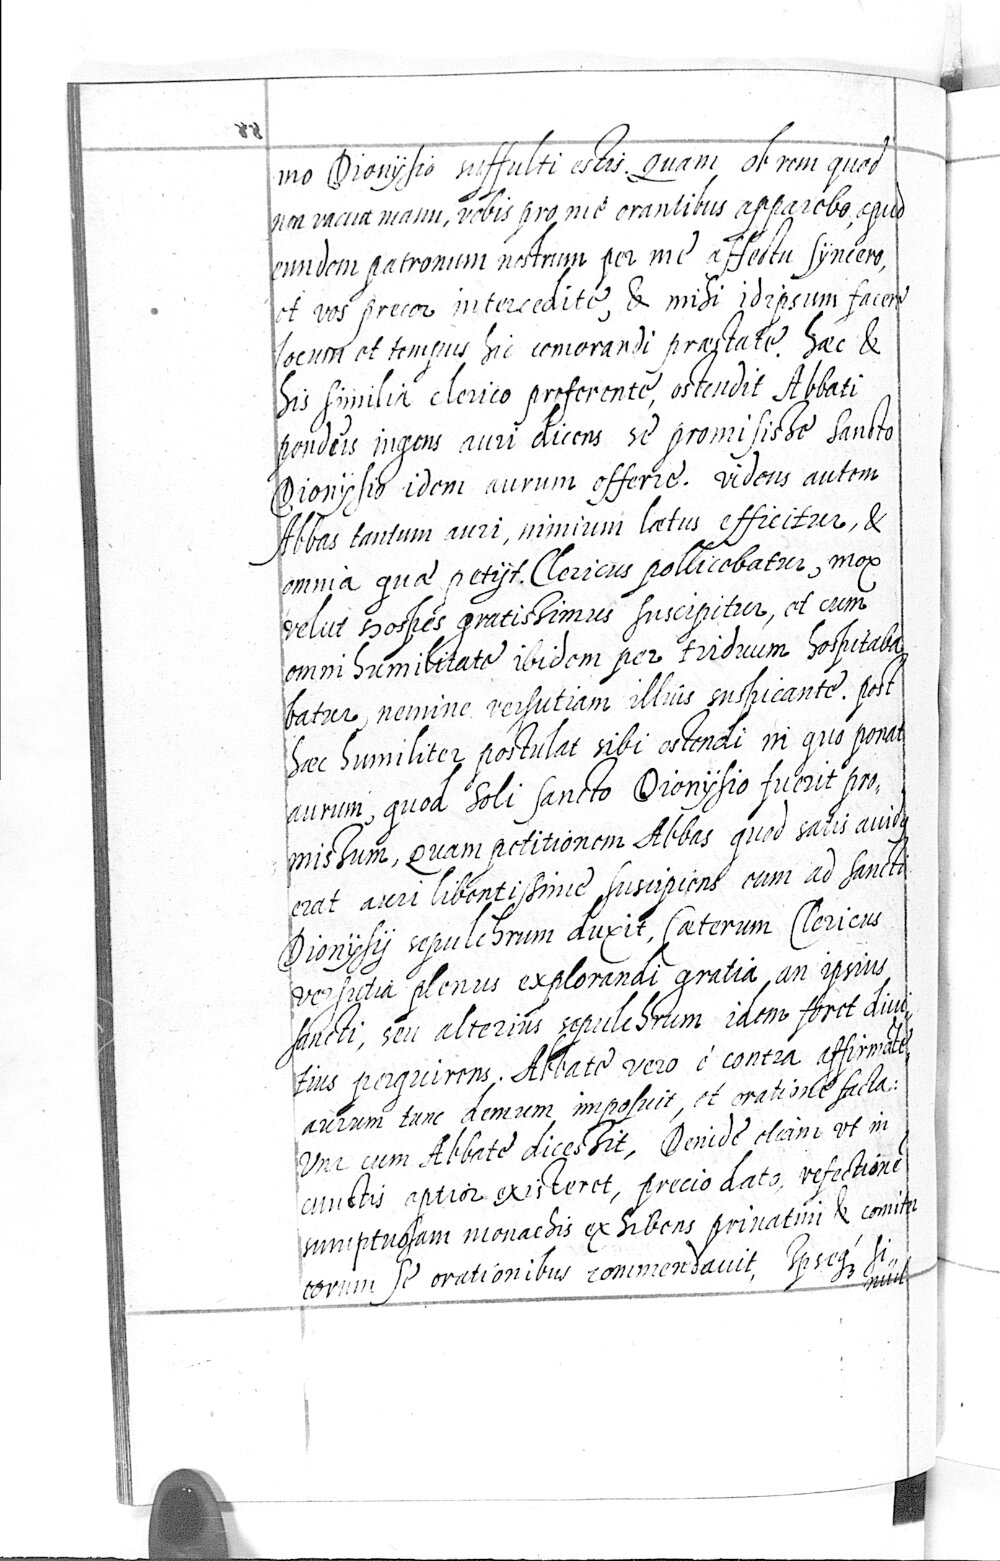 88
mo Dionÿsio suffulti estis. Quam ob rem quod
non vacua manu, vobis pro me orantibus apparebo, apud
eundem patronum nostrum per me affectu sÿncero,
et vos precor intercedite, & mihi idipsum facere
locum et tempus hic comorandi præstate. hæc &
his similia clerico proferente, ostendit Abbati
pondeis ingens auri dicens se promisisse sancto
Dionÿsio idem aurum offerre. videns autem
Abbas tantum auri, nimium lætus efficitur, &
omnia quæ petijt. Clericus pollicebatur, mox
velut hospes gratissimus suscipitur, et cum
omni humilitate ibidem per triduum hospitaba
batur, nemine versutiam illius suspicante. post
hæc humiliter postulat sibi ostendi in quo ponat
aurum, quod soli sancto Dionÿsio fuerit pro,
missum, Quam petitionem Abbas quod satis auidus
erat auri libentissime suscipiens eum ad sancti
Dionÿsij sepulchrum duxit, Cæterum Clericus
versutia plenus explorandi gratia, an ipsius
sancti, seu alterius sepulchrum idem foret diu,
tius perquirens. Abbate vero è contra affirmate,
aurum tunc demum imposuit, et oratione facta:
Vna cum Abbate dicessit, Deinde etiam vt in
cunctis aptior existeret, precio dato, refectione
sumptuosam monachis exhibens priuatim & comiter
eorum se orationibus commendauit, Ipseq́ȝ si
niul